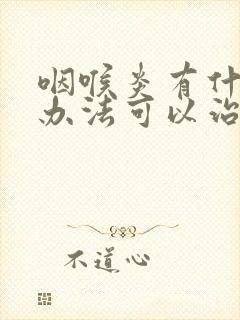 咽喉炎有什
办法可以治
不道心